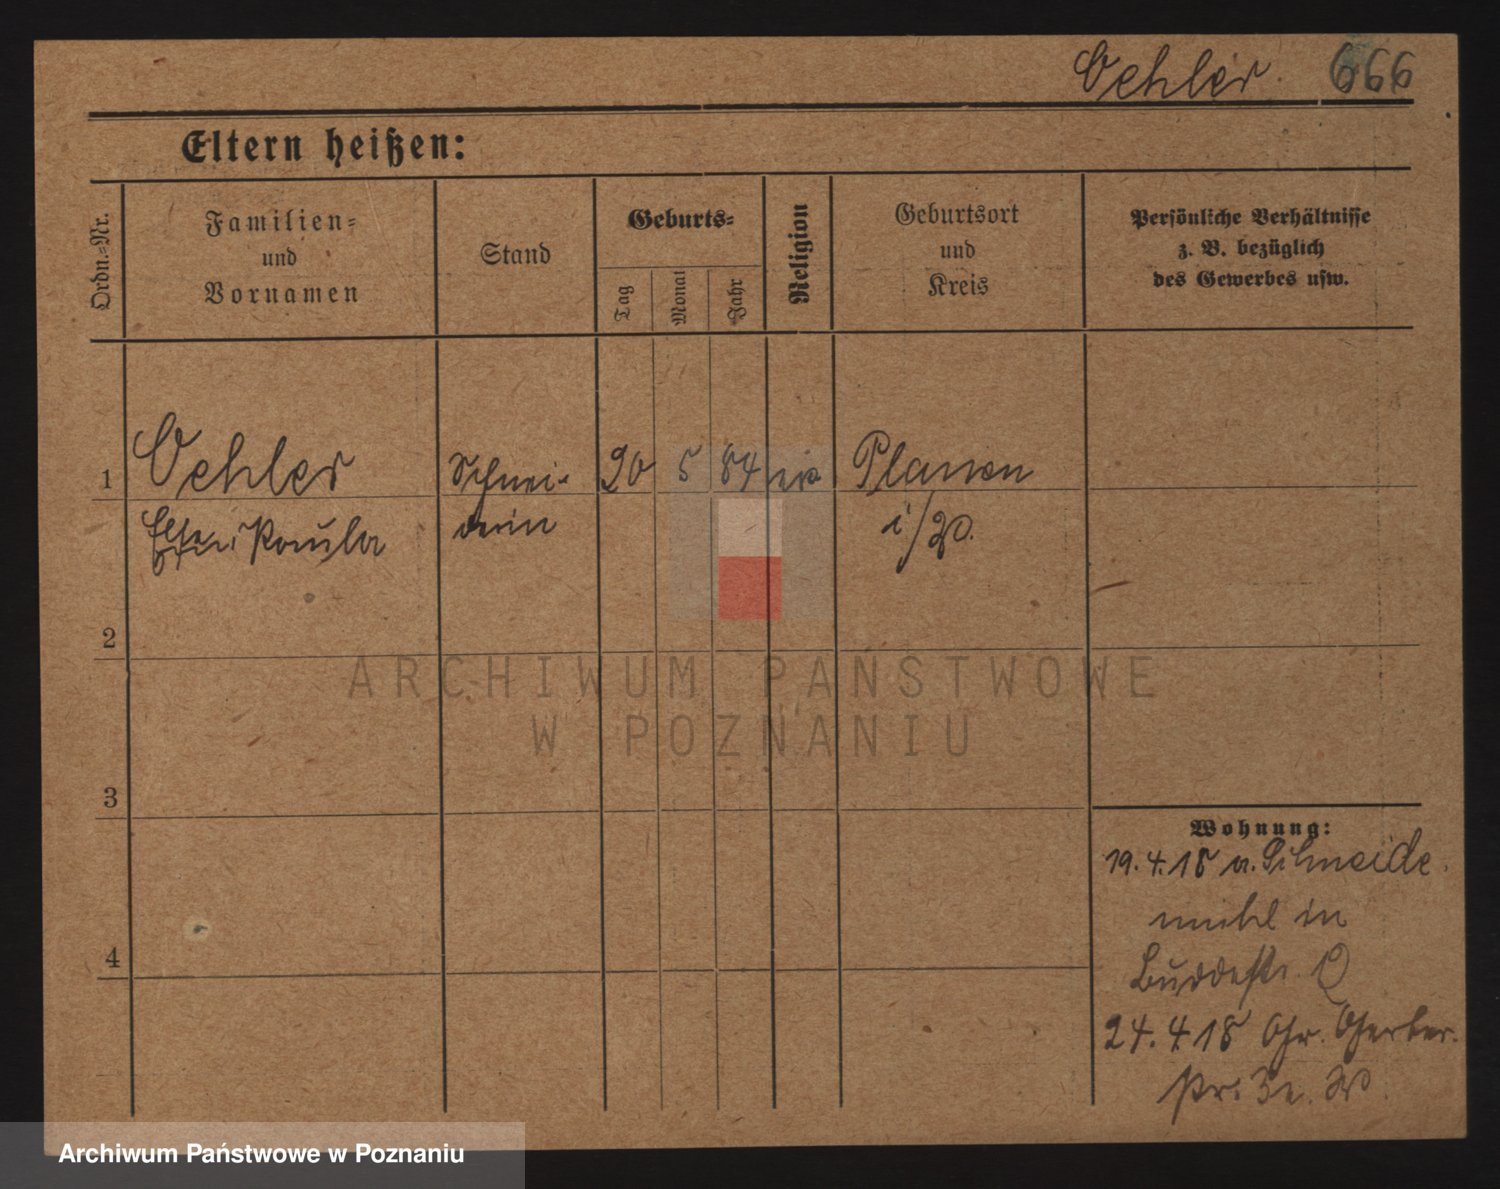 Oehler. 666
Eltern heißen:
Ordn.-Nr.
Familien-
und
Vornamen
Stand
Geburts-
Tag
Monat
Jahr
Religion
Geburtsort
und
Kreis
Persönliche Verhältnisse
z. B. bezüglich
des Gewerbes usw.
1
Oehler
Schnei-
20 5 84
Plauen
Paula
derin
i/V.
2
ARCHIWUM PAŃSTWOWE
W POZNANIU
3
Wohnung:
19.4.18 a. Schneide
mühl in
Buddestr.
4
24.4.18 Gr. Gerber
str.
Archiwum Państwowe w Poznaniu